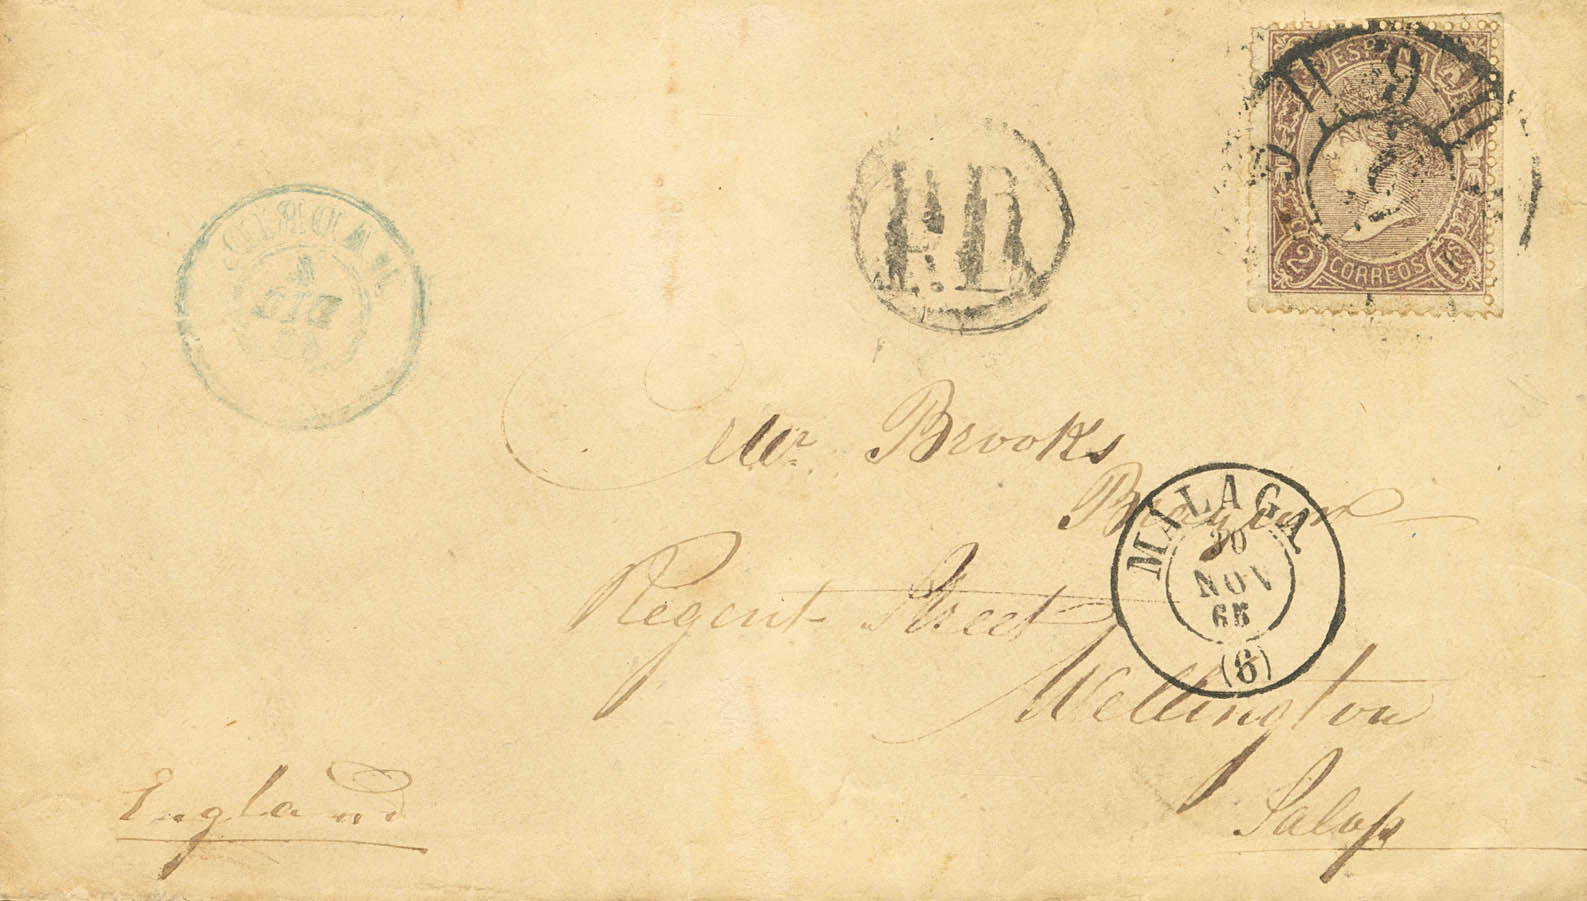 ESPAÑA
2 Rs
CORREOS
P.D.
MADRID
DIC
Mr Brooks
MALAGA
30
NOV
65
(6)
Regent Street
Wellington
Salop
England